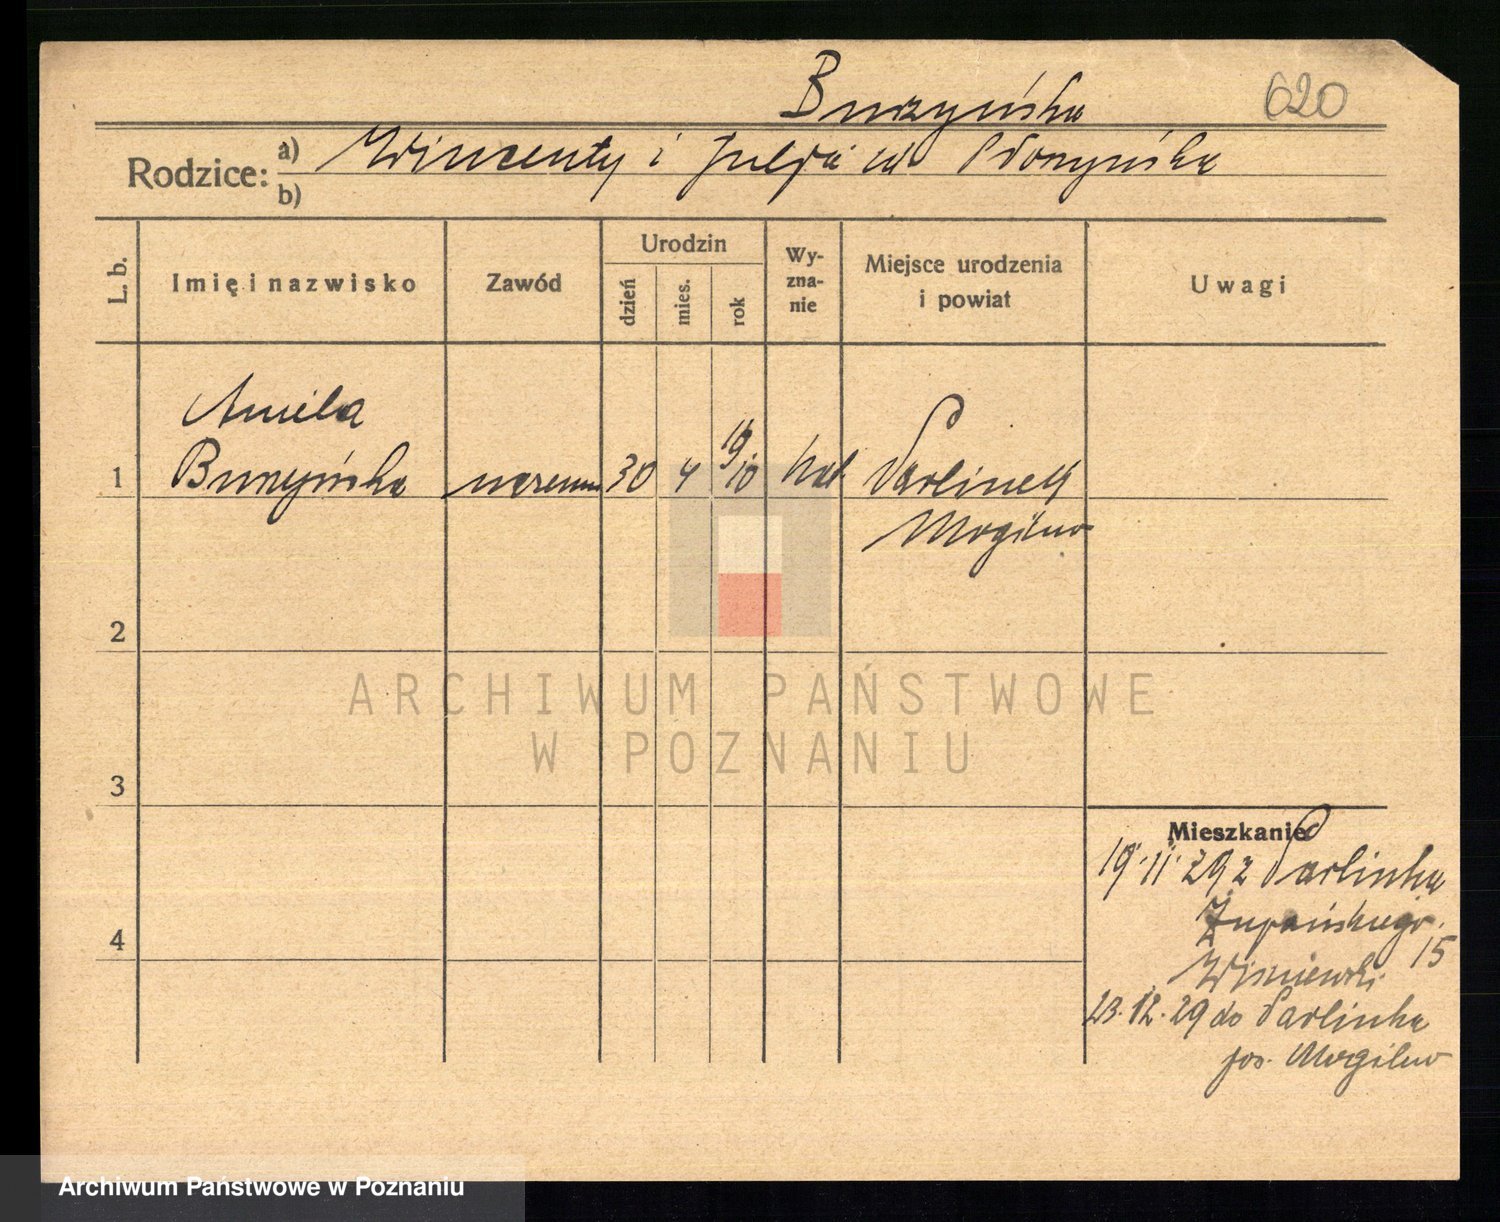 Burzyńska 620
Rodzice: a) Wincenty i Julja
b)
L. b.
Imię i nazwisko
Zawód
Urodzin
dzień
mies.
rok
Wy-
zna-
nie
Miejsce urodzenia
i powiat
Uwagi
Aniela
1 Burzyńska 30 4 19/10 kat. Parlinek
Mogilno
2
ARCHIWUM PAŃSTWOWE
W POZNANIU
3
Mieszkanie
19.11.29 z Parlinka
Żupańskiego
15
Wiśniewski
23.12.29 do Parlinka
pow. Mogilno
4
Archiwum Państwowe w Poznaniu